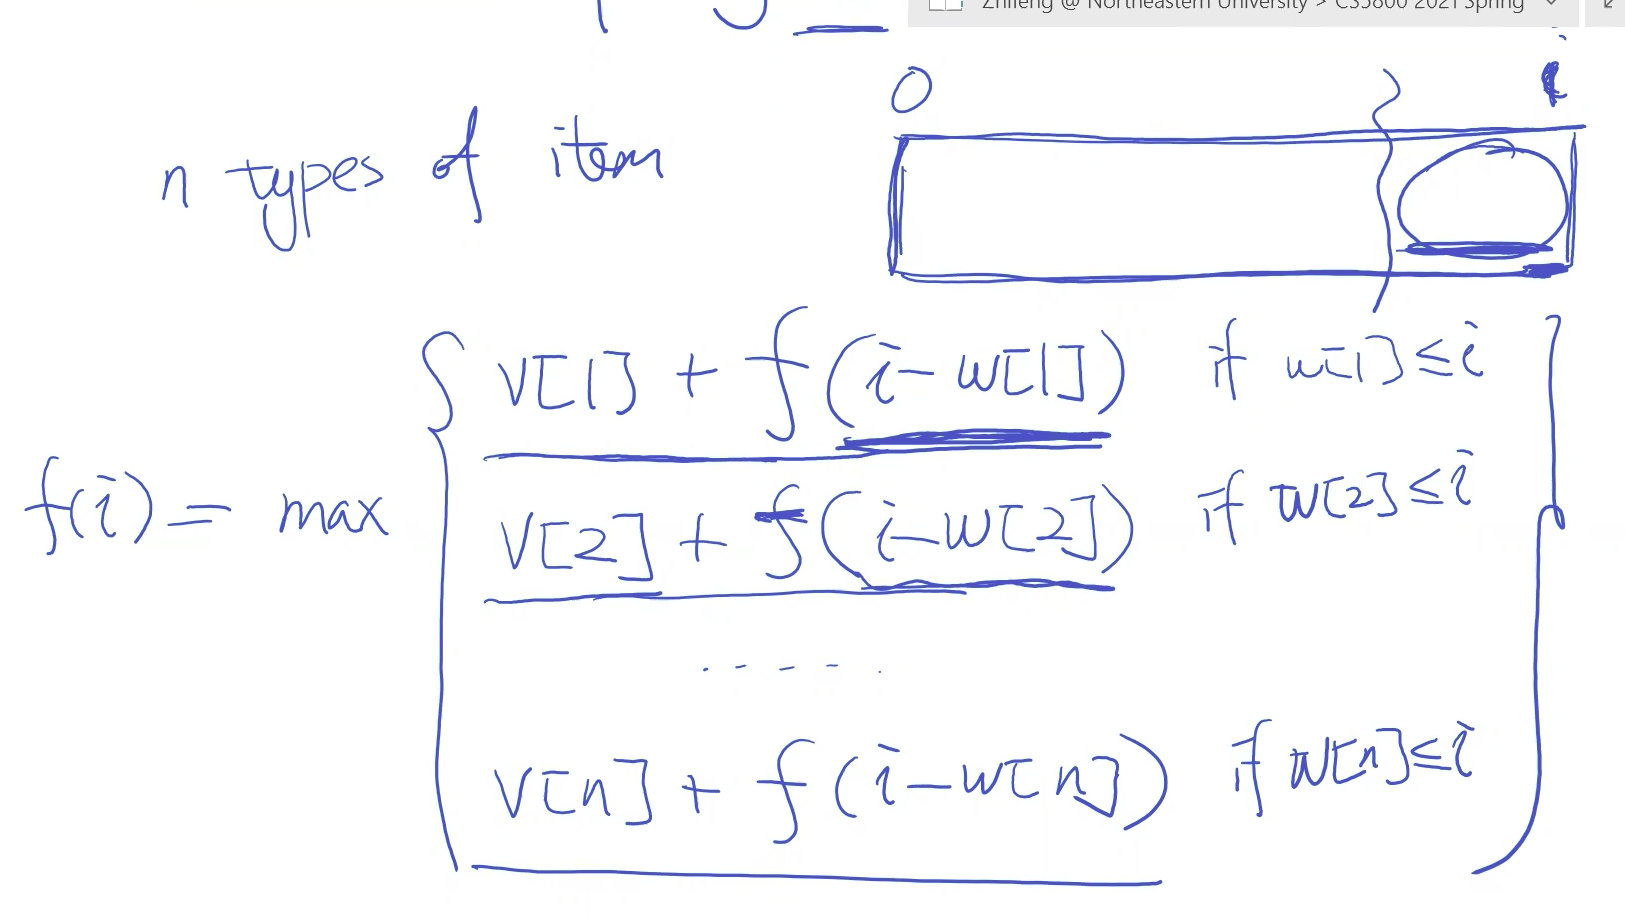 Zhifeng @ Northeastern University > CS5800 2021 Spring
0 i
n types of item
V[1] + f(i-W[1]) if W[1]≤i
f(i) = max
V[2] + f(i-W[2]) if W[2]≤i
.---.
V[n] + f(i-W[n]) if W[n]≤i